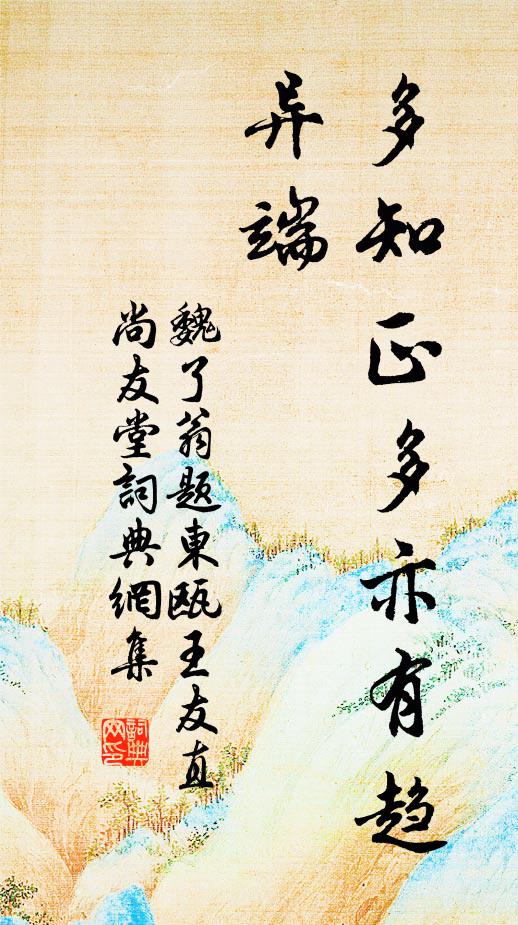 多知正多亦有趋
异端
魏了翁题東瓯王友直
尚友堂詞典網集
詞典网印